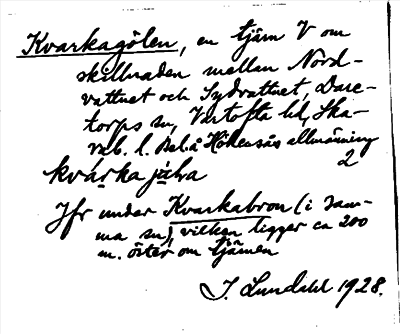 Kvarkagölen, en tjärn V om
skillnaden mellan Nord-
vattnet och Sydvattnet, Dare-
torps sn, Vartofta hd, Ska-
rab. l. Bel. å Hökensås allmänning
kvárka jä̀ḷa 2
Jfr under Kvarkabron (i sam-
ma sn), vilken ligger ca 200
m. öster om tjärnen
J. Lundahl 1928.